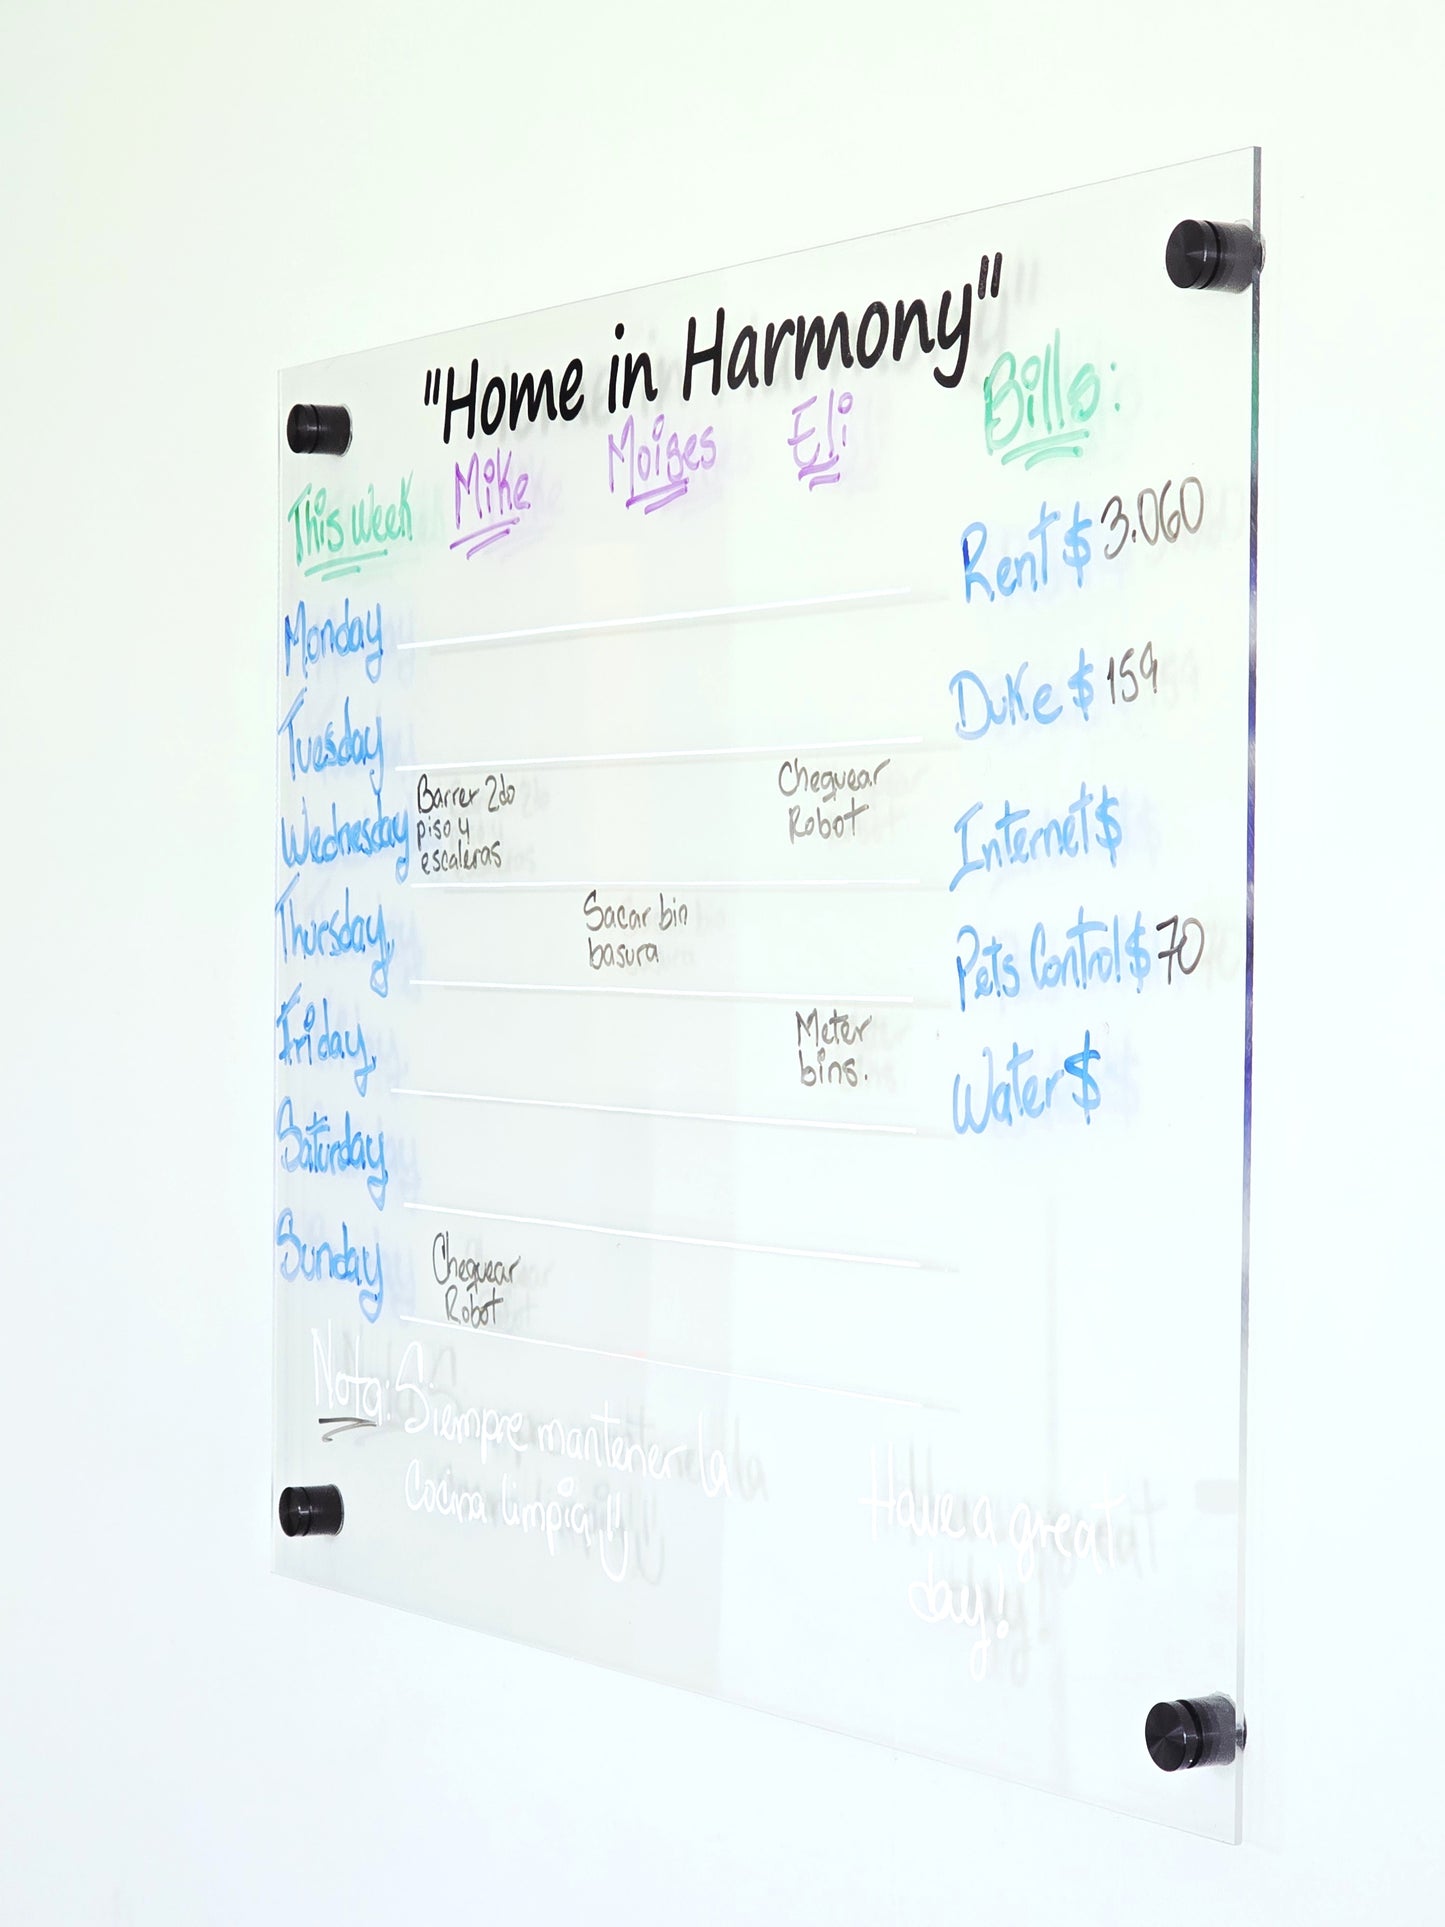 "Home in Harmony"
This Week
Mike
Moises
Eli
Bills:
Monday
Tuesday
Wednesday
Barrer 2do
piso y
escaleras
Chequear
Robot
Thursday
Sacar bin
basura
Friday
Meter
bins.
Saturday
Sunday
Chequear
Robot
Rent $ 3.060
Duke $ 159
Internet $
Pets Control $ 70
Water $
Nota: Siempre mantener la
Cocina limpia
Have a great
day!